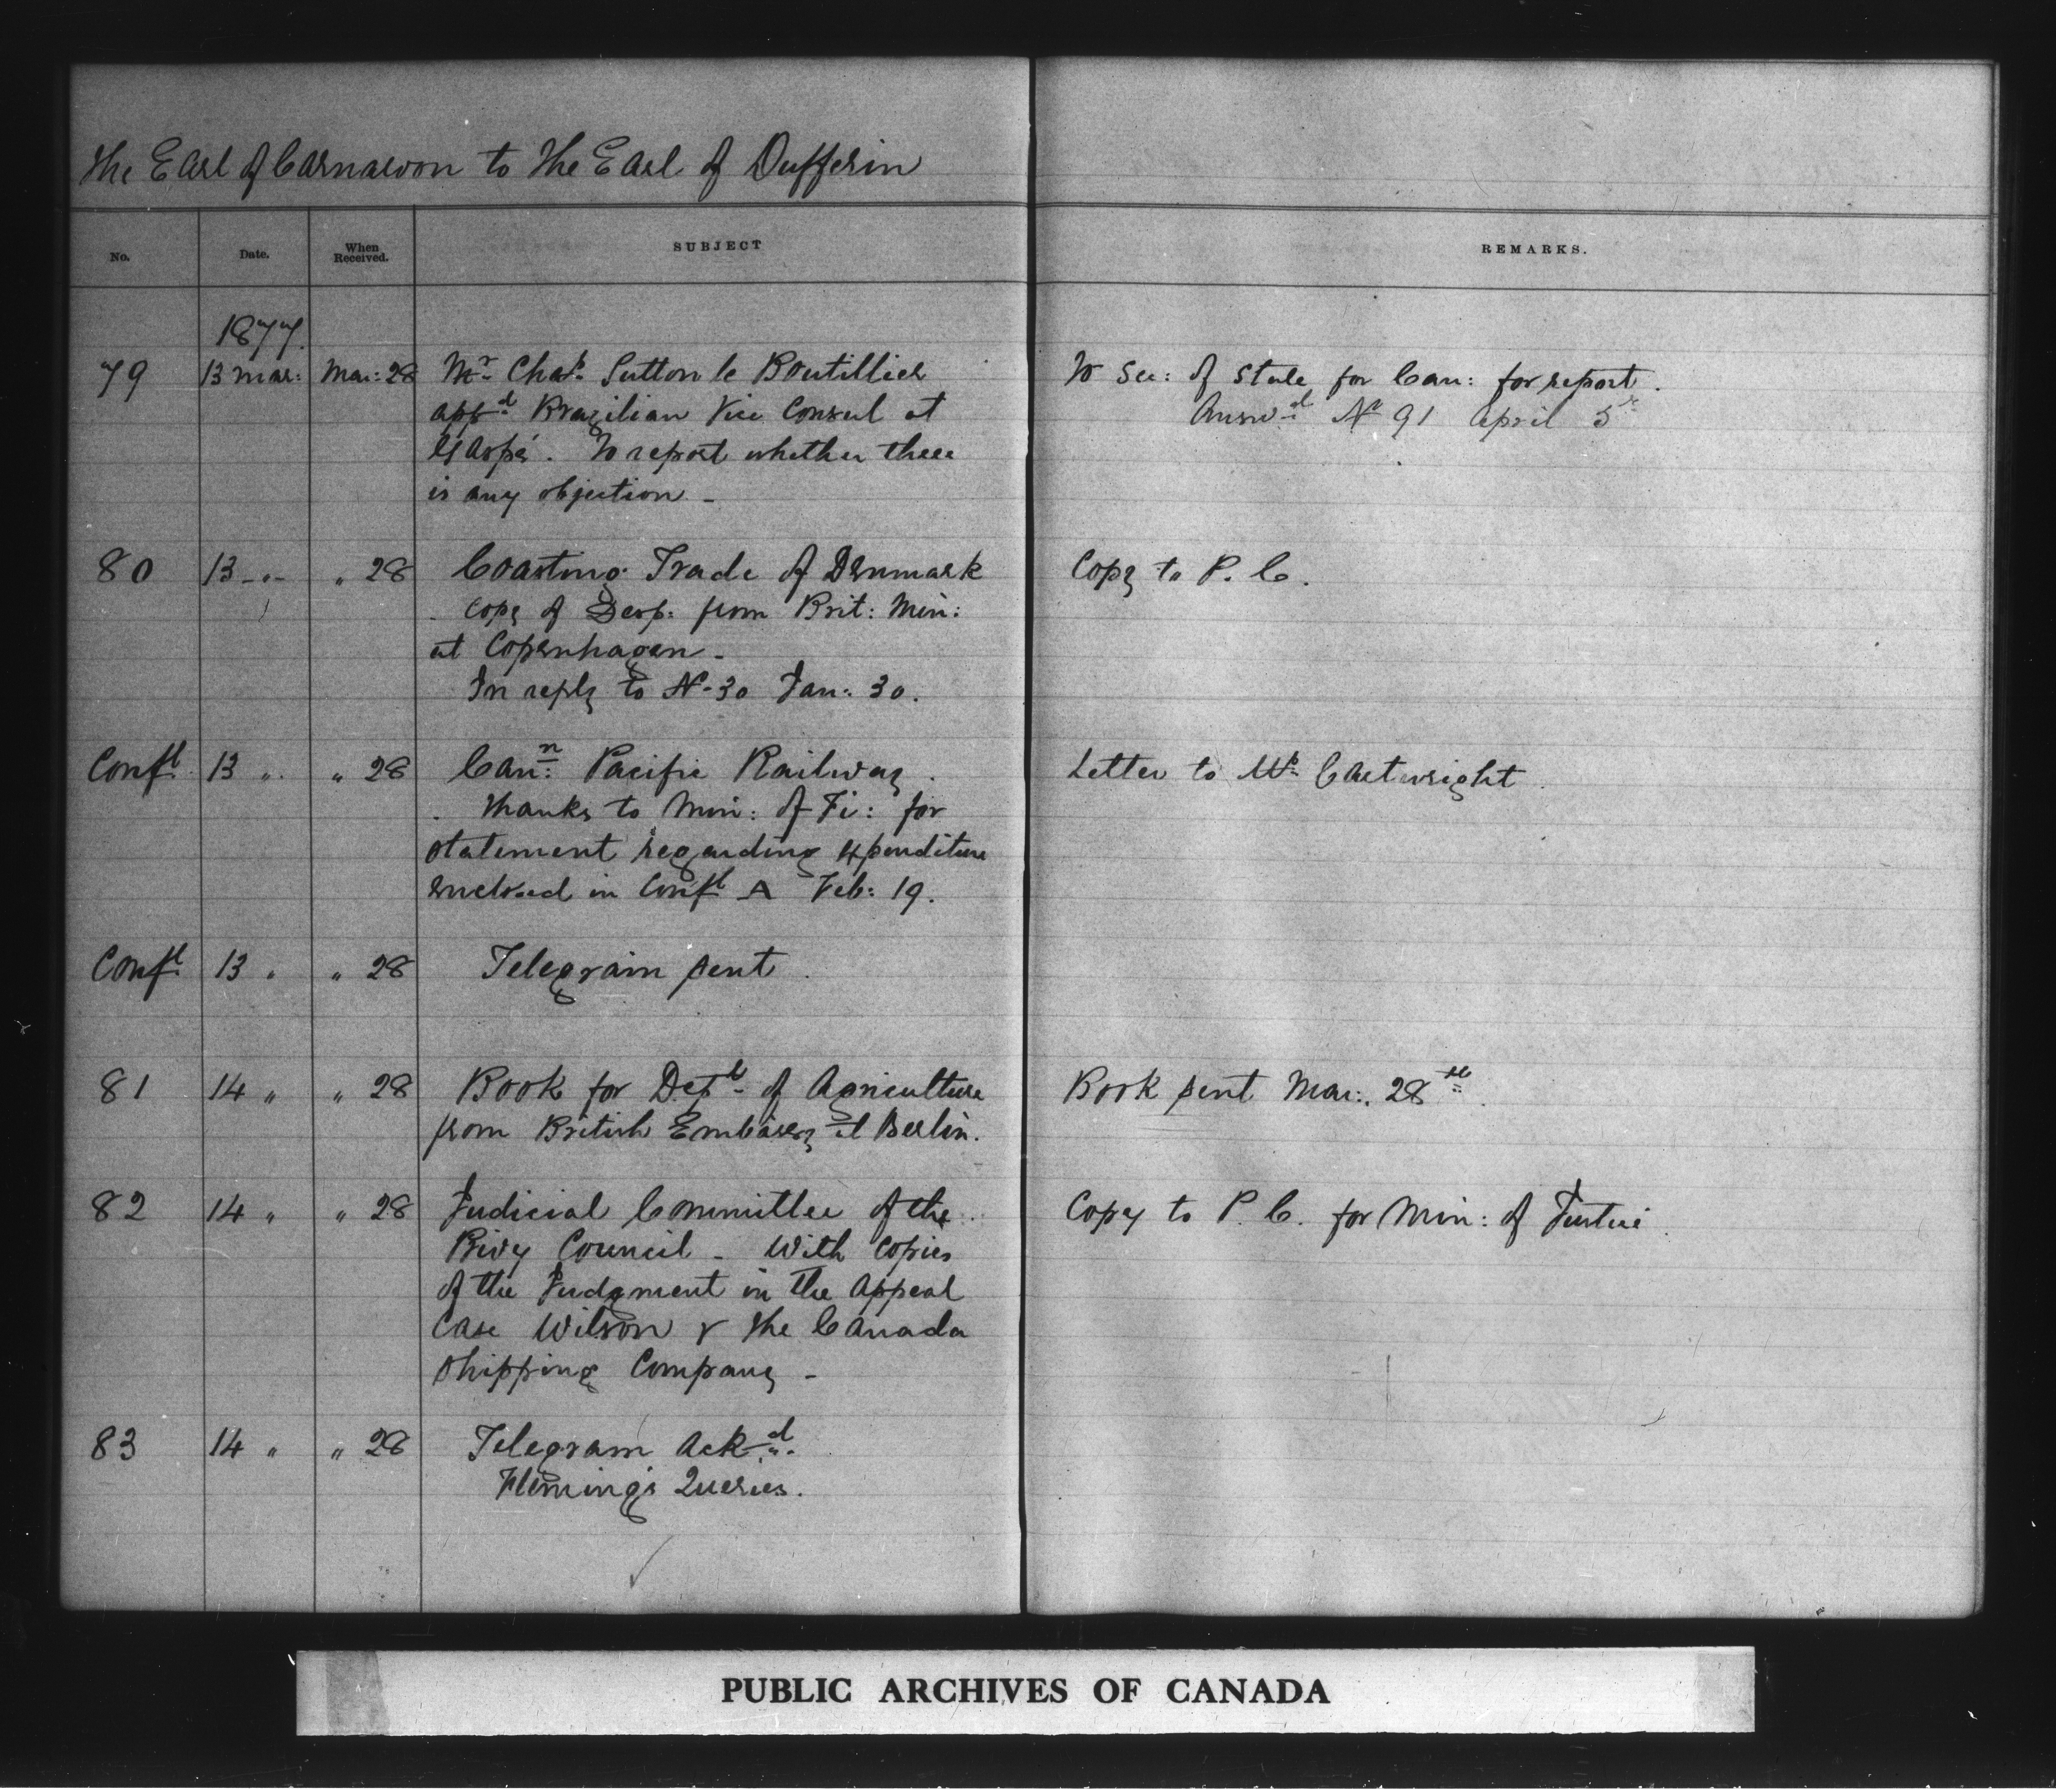 The Earl of Carnarvon to The Earl of Dufferin
No. Date. When Received. SUBJECT REMARKS.
1877.
79 13 Mar: Mar: 28 Mr. Chas. Sutton le Boutillier To Sec: of State for Can: for report.
appd. Brazilian Vice Consul at Answd. No 91 April 5
Gaspé. To report whether there
is any objection -
80 13 -"- " 28 Coasting Trade of Denmark Copy to P. C.
Copy of Desp: from Brit: Min:
at Copenhagen -
In reply to No. 30 Jan: 30.
Confl. 13 " " 28 Cann: Pacific Railway. Letter to Mr. Cartwright.
Thanks to Min: of Fi: for
statement regarding expenditure
enclosed in Confl A Feb: 19.
Confl. 13 " " 28 Telegram sent.
81 14 " " 28 Book for Dept. of Agriculture Book sent Mar: 28th.
from British Embassy at Berlin.
82 14 " " 28 Judicial Committee of the Copy to P. C. for Min: of Justice.
Privy Council - With Copies
of the Judgment in the Appeal
Case Wilson v the Canada
Shipping Company -
83 14 " " 28 Telegram Ackd.
Fleming's Queries.
PUBLIC ARCHIVES OF CANADA